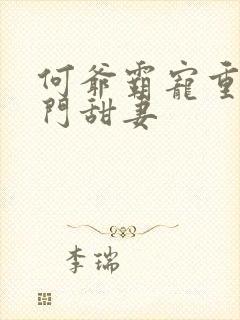 何爺霸寵重
門甜妻
李瑞